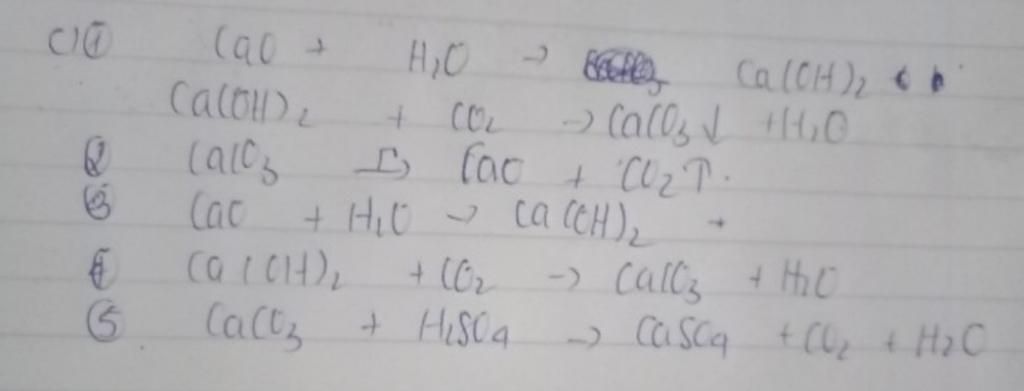 c) ① CaO + H₂O → Ca(OH)₂
Ca(OH)₂ + CO₂ → CaCO₃↓ + H₂O
② CaCO₃ → CaO + CO₂↑.
③ CaO + H₂O → Ca(OH)₂
④ Ca(OH)₂ + CO₂ → CaCO₃ + H₂O
⑤ CaCO₃ + H₂SO₄ → CaSO₄ + CO₂ + H₂O